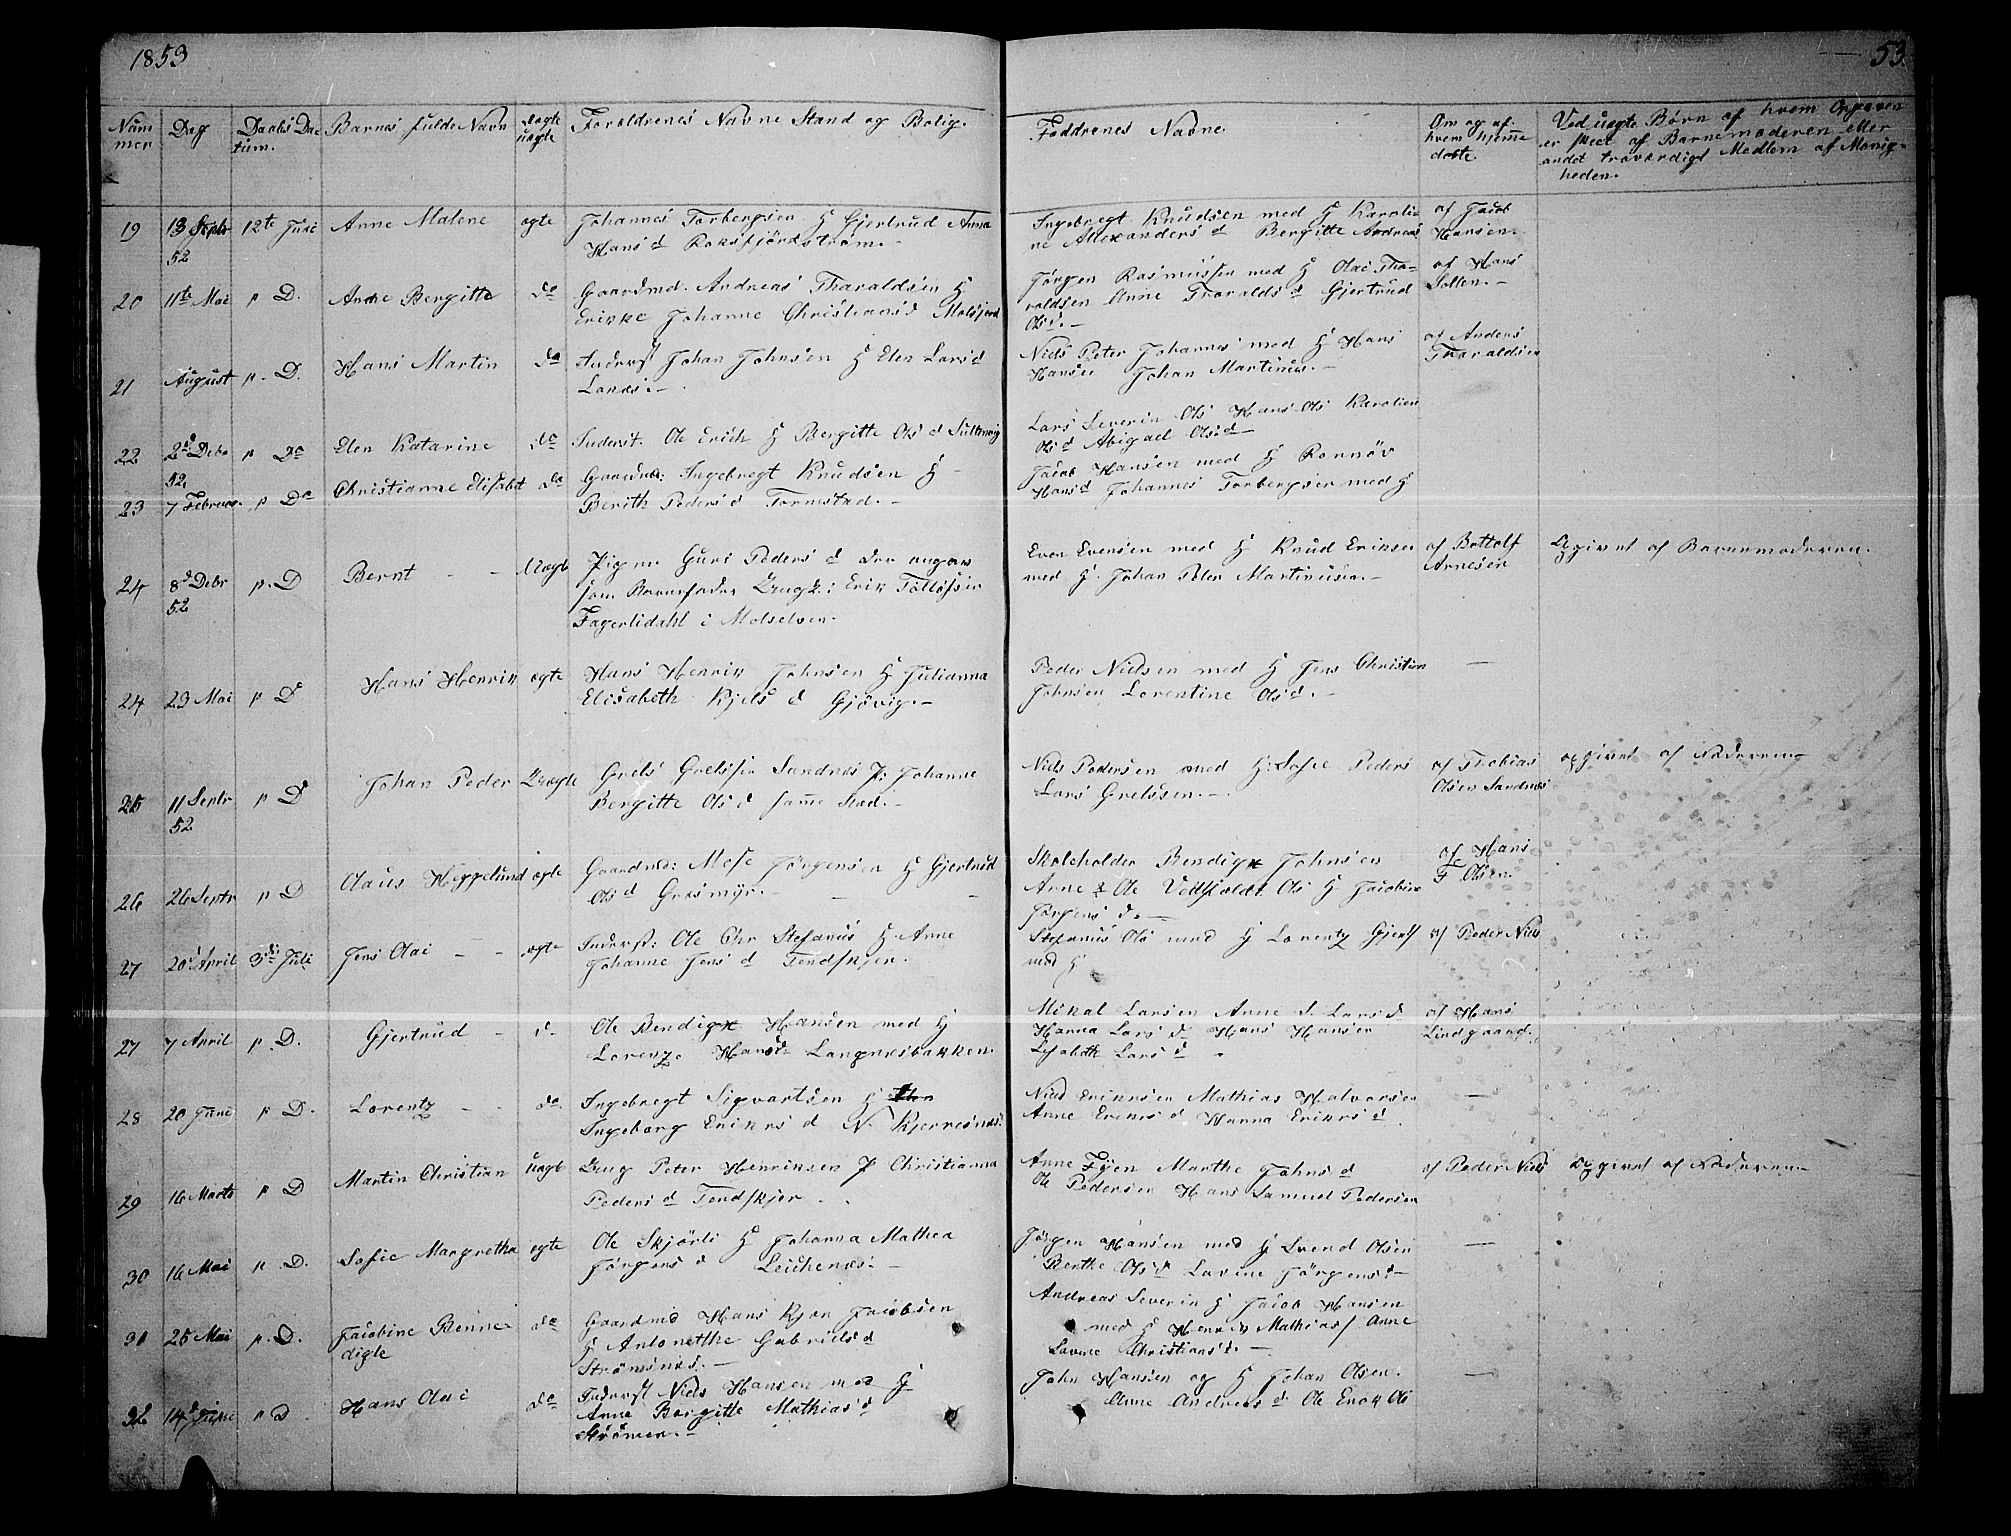 1853
53.
Num
mer
Dag
Daabs Da
tum.
Barnes fulde Navn
ægte
uægte
Forældrenes Navne Stand og Bolig.
Faddrenes Navne
Om og af
hvem hjemme
døbte.
Ved uægte Børn af hvem Opgaven
er skeet af Barnemoderen eller
andet troværdigt Medlem af Menig-
heden.
19 13 Septr 12te Juni Anne Malene ægte Johannes Torbergsen H Gjertrud Anna
52 Hans d
Ingebregt Knudsen med H Karoli-
ne Allexanders d Bergitte Andreas
af Jacob
Hansen.
20 11te Mai p D. Anne Bergitte do Gaardmd. Andreas Tharaldsen H
Johanne Christians d
Jørgen Rasmussen med H Olai Tha-
raldsen Anne Tharalds d Gjertrud
Ols d. -
af Hans
21 August p. D. Hans Martin do Inderst Johan Johnsen H Elen Lars d
Niels Peter Johannes med H Hans
Hansen Johan Martinus. -
af Anders
Tharaldsen
22 2d Debr p Do Elen Katarine do Inderst. Ole Erich H Bergitte Ols d
52
Lars Severin Ols Hans Ols Karoline
Ols d Abigael Ols d
23 7 Februar. p Do Christianne Elisabet do Gaardmd: Ingebregt Knudsen H -
Berith Peders d
Jacob Hansen med H Rønnøv
Hans d Johannes Torbergsen med H
24 8d Debr p. D Bernt - - Uægte Pigen Guri Peders d der angav
52 som Barnefader Ungk: Erik Tolløfsen
Fagerlidahl i Molselven.
Even Evensen med H Knud Eriksen
med H. Johan Peter Martinusen. -
af Bottolf
Arnesen
Opgivet af Barnemoderen.
24 23 Mai p D Hans Henrik ægte Hans Henrik Johnsen H Julianna
Elisabeth Kjels d Gjövig. -
Peder Nielsen med H Jens Christian
Johnsen Lorentine Ols d. -
-
25 11 Septr p D Johan Peder Uægte Grels Grelssen Sandnes P: Johanne
52 Bergitte Ols d samme Sted. -
Niels Pedersen med H: Sofie Peders
Lars Grelssen. -
af Thobias
Olsen Sandnes
opgivet af Faderen
26 26 Septr p D Olaus Heggelund ægte Gaardmd: Mose Jörgensen H Gjertrud
Ols d Græsmyr. -
Skoleholder Bendigt Johnsen
Arne & Ole Ols H Jacobine
Jørgens d. -
af Hans
F Olsen.
27 20d April 3die Juli Jens Olai - - ægte Inderst: Ole Chr Stefanus H Anne
Johanne Jens d Tendskjer.
Stefanus Ols med H Lorentz
med H
af Peder Niels
27 7 April p. D. Gjertrud - d. Ole Bendigt Hansen med H
Lorenze Hans d Langnesbakken.
Mikal Larsen Anne Lars d
Hanna Lars d Hans Hansen
Lisabeth Lars d
af Hans
Lindgaard.
28 20 June p D. Lorentz - do Ingebregt Sigvartsen H
Ingeborg Eriks d N. Kjerresnes.
Niels Eriksen Mathias Halvorsen
Anne Eriks d Hanna Eriks d.
-
29 16 Marts p D Martin Christian uægt Ung Peter Henriksen P Christianna
Peders d Tendskjer.
Anne Fyen Marthe Johns d
Ole Pedersen Hans Samuel Pedersen
af Peder Niels
Opgivet af Faderen
30 16 Mai p. D. Sofie Margretha ægte Ole Skjörli H Johanna Mathea
Jörgens d
Jörgen Hansen med H Svend Olsen
Berthe Ols d Lovine Jörgens d
-
31 25 Mai p. D. Jacobine Benne- do Gaardmd Hans Kjøn Jacobsen
digte H Antonette Gabriels d
Strömsnes. -
Andreas Severin H Jacob Hansen
med H Henrik Mathias Anne
Lovine Christians d. -
32 14d June p D Hans Olai do Inderst Niels Hansen med H
Anne Bergitte Mathias d
Strömen. -
John Hansen og H Johan Olsen.
Anne Andreas d Ole Enok Ols
-